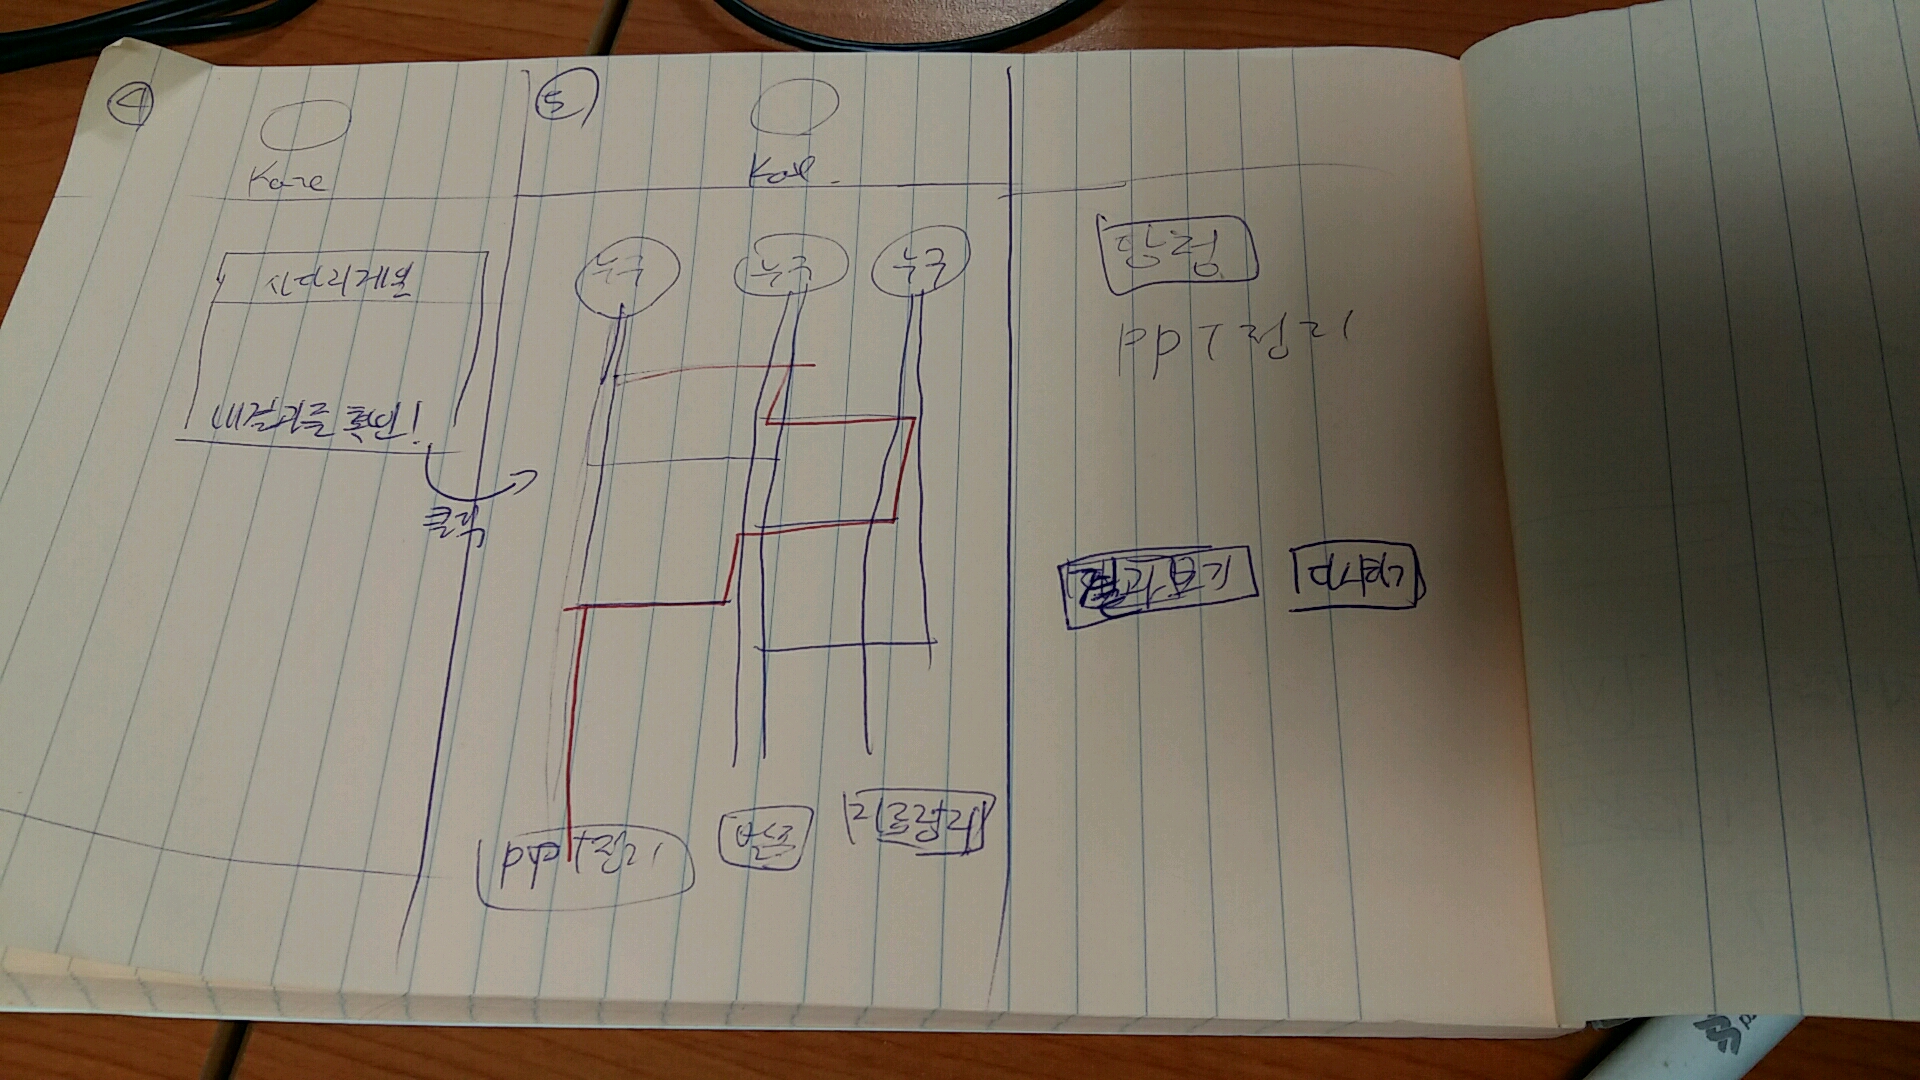 4
Kore
사다리게임
내결과를 확인!
클릭
5
누구
누구
누구
ppT정리
발표
당첨
ppT정리
결과보기
다시하기